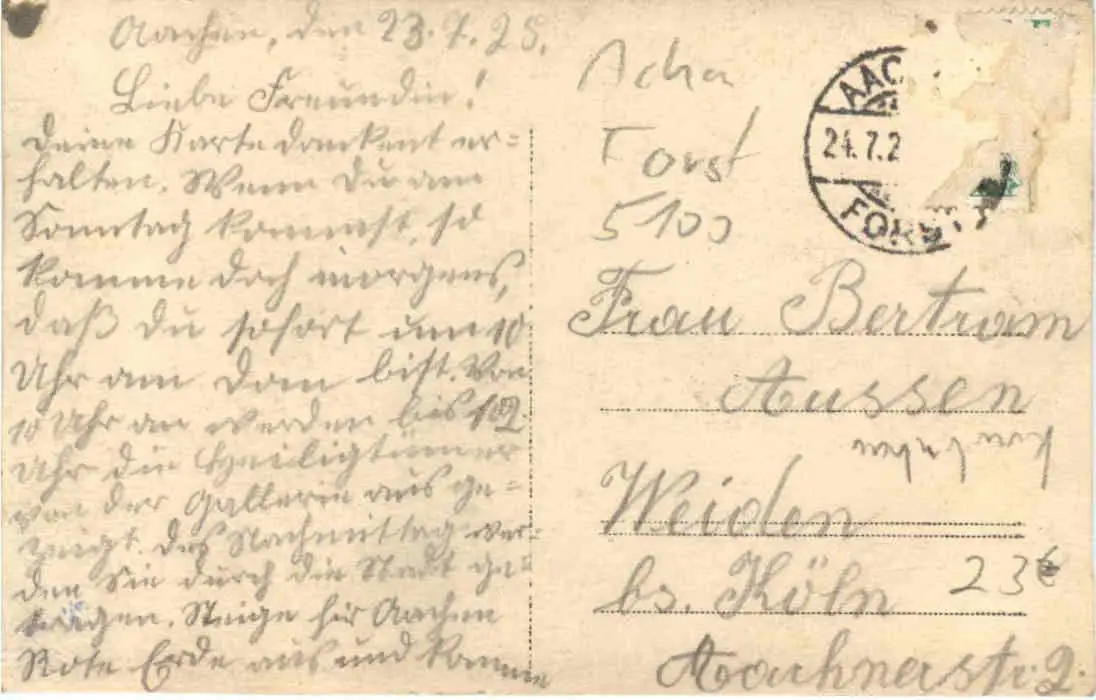 Aachen, den 23.7.25.
Liebe Freundin!
Deine Karte dankent er=
halten. Wenn Du am
Sonntag kommst, so
komme doch morgens,
daß Du sofort um 10
Uhr am Dom bist. Von
10 Uhr an werden bis 12
Uhr die Heiligtümer
von der Gallerie aus ge=
zeigt. Des Nachmittag wer=
den Sie durch die Stadt ge=
tragen. Steige hir Aachen
Rote Erde aus und komme
Acha
Forst
5100
AAC
24.7.2
FORST
Frau Bertram
Aussen
Weiden
bs. Köln
23€
Aachnerstr. 2.